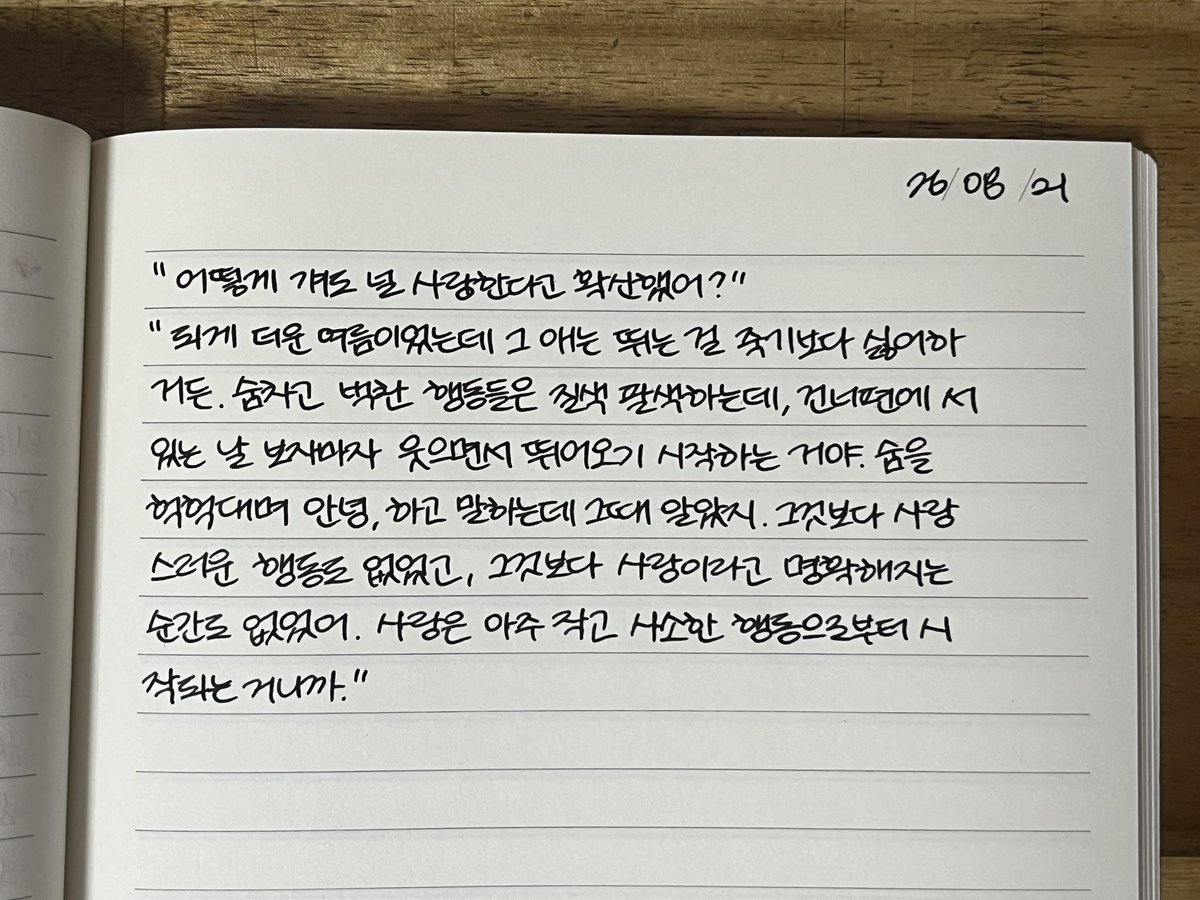 26/08/21
"어떻게 걔도 널 사랑한다고 확신했어?"
"되게 더운 여름이었는데 그 애는 뛰는 걸 죽기보다 싫어하
거든. 숨차고 벅찬 행동들은 질색 팔색하는데, 건너편에 서
있는 날 보자마자 웃으면서 뛰어오기 시작하는 거야. 숨을
헉헉대며 안녕, 하고 말하는데 그때 알았지. 그것보다 사랑
스러운 행동도 없었고, 그것보다 사랑이라고 명확해지는
순간도 없었어. 사랑은 아주 작고 사소한 행동으로부터 시
작되는 거니까."